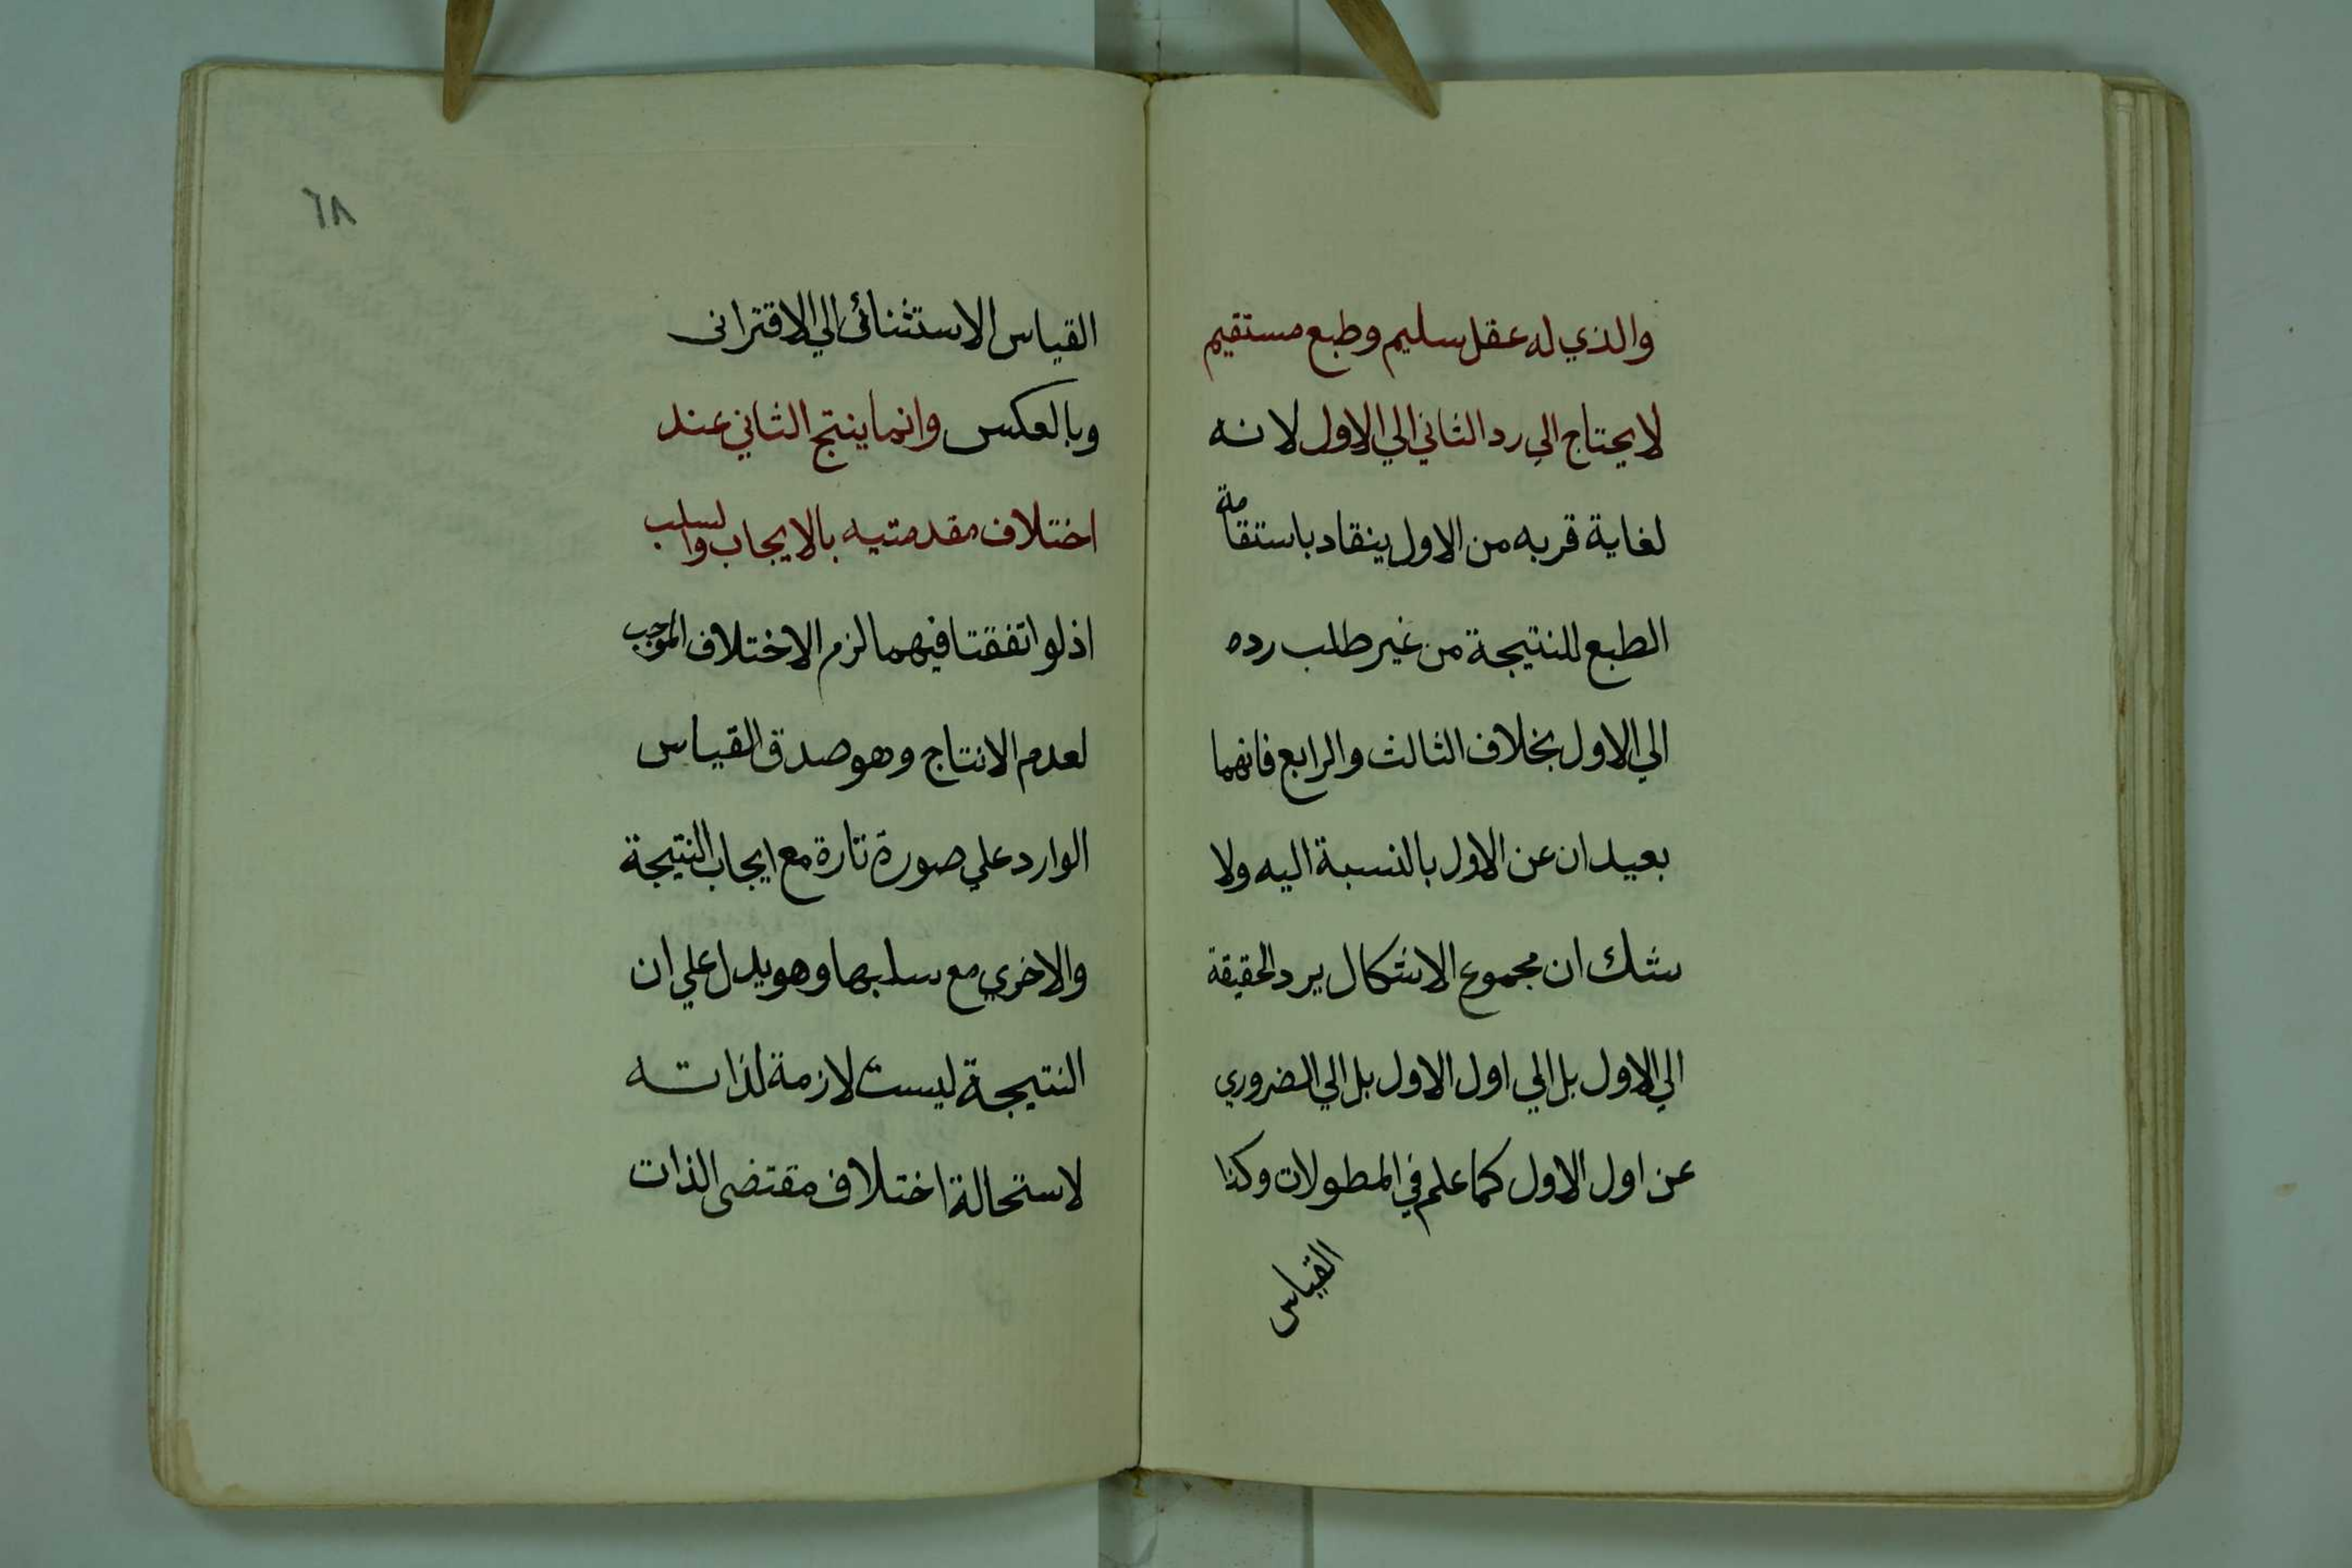 والذي له عقل سليم وطبع مستقيم
لا يحتاج الي رد الثاني الي الاول لانه
لغاية قربه من الاول ينقاد باستقامة
الطبع للنتيجة من غير طلب رده
الي الاول بخلاف الثالث والرابع فانهما
بعيدان عن الاول بالنسبة اليه ولا
شك ان مجموع الاشكال يرد الحقيقة
الي الاول بل الي اول الاول بل الي الضروري
عن اول الاول كما علم في المطولات وكذا
القياس
٦٨
القياس الاستثنائى الي الاقترانى
وبالعكس وانما ينتج الثاني عند
اختلاف مقدمتيه بالايجاب والسلب
اذ لو اتفقتا فيهما لزم الاختلاف الموجب
لعدم الانتاج وهو صدق القياس
الوارد علي صورة تارة مع ايجاب النتيجة
والاخري مع سلبها وهو يدل علي ان
النتيجة ليست لازمة لذاته
لاستحالة اختلاف مقتضى الذات